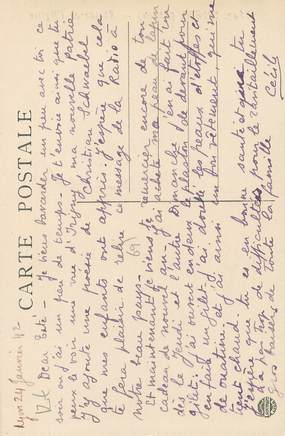 CARTE POSTALE
Lyon 24 Janvier 42
Dear Bébé - Je viens bavarder un peu avec toi ce
soir où j'ai un peu de temps. Je t'envoie ainsi que tu
peux le voir une vue d'Irigny ma nouvelle patrie
J'y ajoute une poésie de Christian Schwaebel
que mes enfants ont appris. J'espère que cela
te fera plaisir de relire ce message de la Radio à
notre beau pays.
Et maintenant je viens te remercier encore de ton
cadeau de nouvel an. J'ai acheté ma peau de lapin
dès le Jeudi et l'autre Dimanche j'en ai fait un
gilet. J'ai ouvert en deux le plastron de devant pour
en faire un gilet. J'ai doublé les
de ouatine et j'ai ainsi un bon vêtement qui me
tient chaud.
J'espère que tu es en bonne santé et que tu
n'a pas trop de difficultés pour le ravitaillement
Gros baisers de toute la famille
Cécile